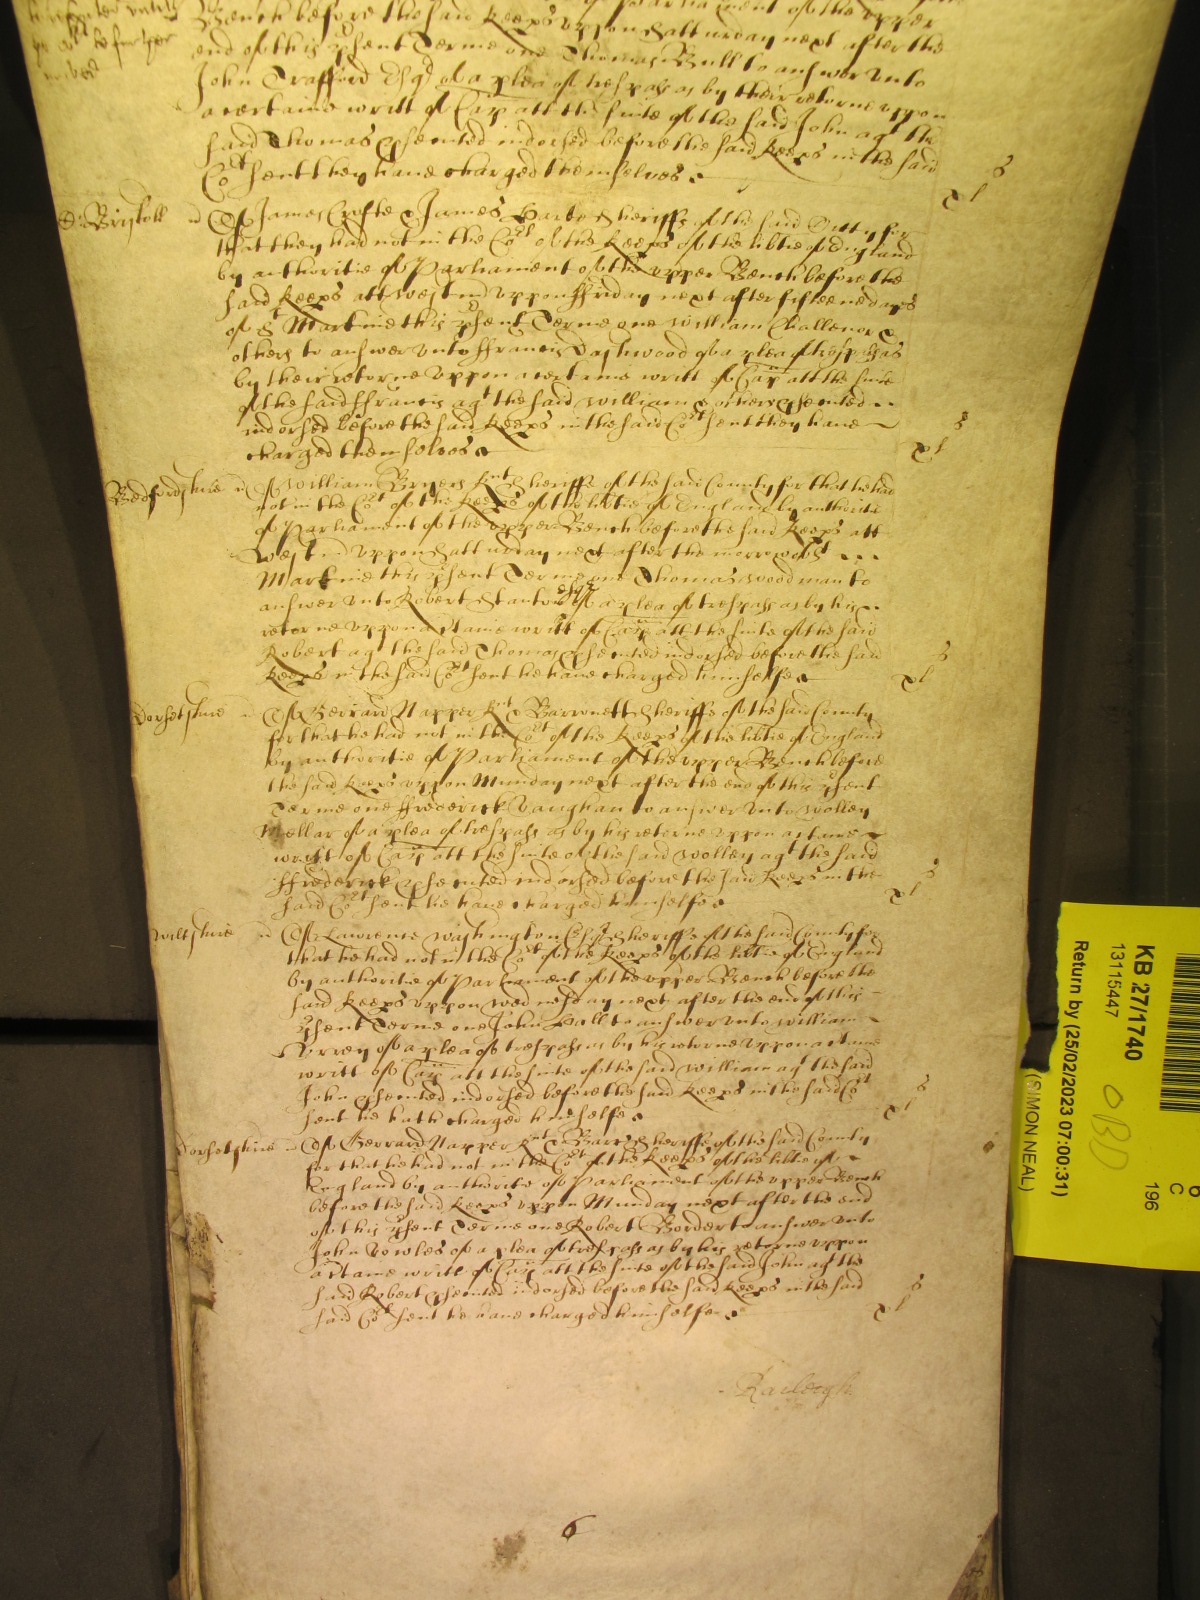 Bench before the said Keeps uppon Satturday next after the
end of this p'sent Terme one Thomas Bull to answer unto
John Trafford Esqr of a plea of trespas as by their retorne uppon
a certaine writt of Cap att the suite of the said John agt the
said Thomas p'sented indorsed before the said Keeps in the said
Cort sent they have charged themselves
s
xl
C: Bristoll
Of James Crofte & James Sheriffs of the said Citty for
that they had not in the Cort of the Keeps of the libtie of England
by authoritie of Parliament of the upper Bench before the
said Keeps att Westm uppon ffriday next after fifteene dayes
of St Martine this p'sent Terme one William Challenor &
others to answer unto ffrancis Dashwood of a plea of trespas as
by their retorne uppon a certeine writt of Cap att the suite
of the said ffrancis agt the said William & others p'sented
indorsed before the said Keeps in the said Cort sent they have
charged themselves
s
xl
Bedfordshire
Of William Bryers Knt Sheriffe of the said County for that he had
not in the Cort of the Keeps of the libtie of England by authoritie
of Parliament of the upper Bench before the said Keeps att
Westm uppon Satturday next after the morrow of St
Martine this p'sent Terme one Thomas Woodman to
answer unto Robert Stanton Esqr of a plea of trespass as by his
retorne uppon a c'taine writt of Cap att the suite of the said
Robert agt the said Thomas p'sented indorsed before the said
Keeps in the said Cort sent he have charged himselfe
s
xl
Dorsetshire
Of Gerrard Napper Knt & Barronett Sheriffe of the said County
for that he had not in the Cort of the Keeps of the libtie of England
by authoritie of Parliament of the upper Bench before
the said Keeps uppon Munday next after the end of this p'sent
Terme one ffrederick Vaughan to answer unto Wolley
Mellar of a plea of trespass as by his retorne uppon a c'taine
writt of Cap att the suite of the said Wolley agt the said
ffrederick p'sented indorsed before the said Keeps in the
said Cort sent he have charged himselfe
s
xl
Wiltshire
Of Lawrence Washington Esqr Sheriffe of the said County for
that he had not in the Cort of the Keeps of the libtie of England
by authoritie of Parliament of the upper Bench before the
said Keeps uppon Wednesday next after the end of this
p'sent Terme one John Hall to answer unto William
of a plea of trespass as by his retorne uppon a c'taine
writt of Cap att the suite of the said William agt the said
John p'sented indorsed before the said Keeps in the said Cort
sent he hath charged himselfe
s
xl
Dorsetshire
Of Gerrard Napper Knt & Barrt Sheriffe of the said County
for that he had not in the Cort of the Keeps of the libtie of
England by authoritie of Parliament of the upper Bench
before the said Keeps uppon Munday next after the end
of this p'sent Terme one Robert Border to answer unto
John Vowles of a plea of trespass as by his retorne uppon
a c'taine writt of Cap att the suite of the said John agt the
said Robert p'sented indorsed before the said Keeps in the said
said Cort sent he have charged himselfe
s
xl
6
KB 27/1740
13115447
Return by (25/02/2023 07:00:31)
(SIMON NEAL)
OBD
C
196